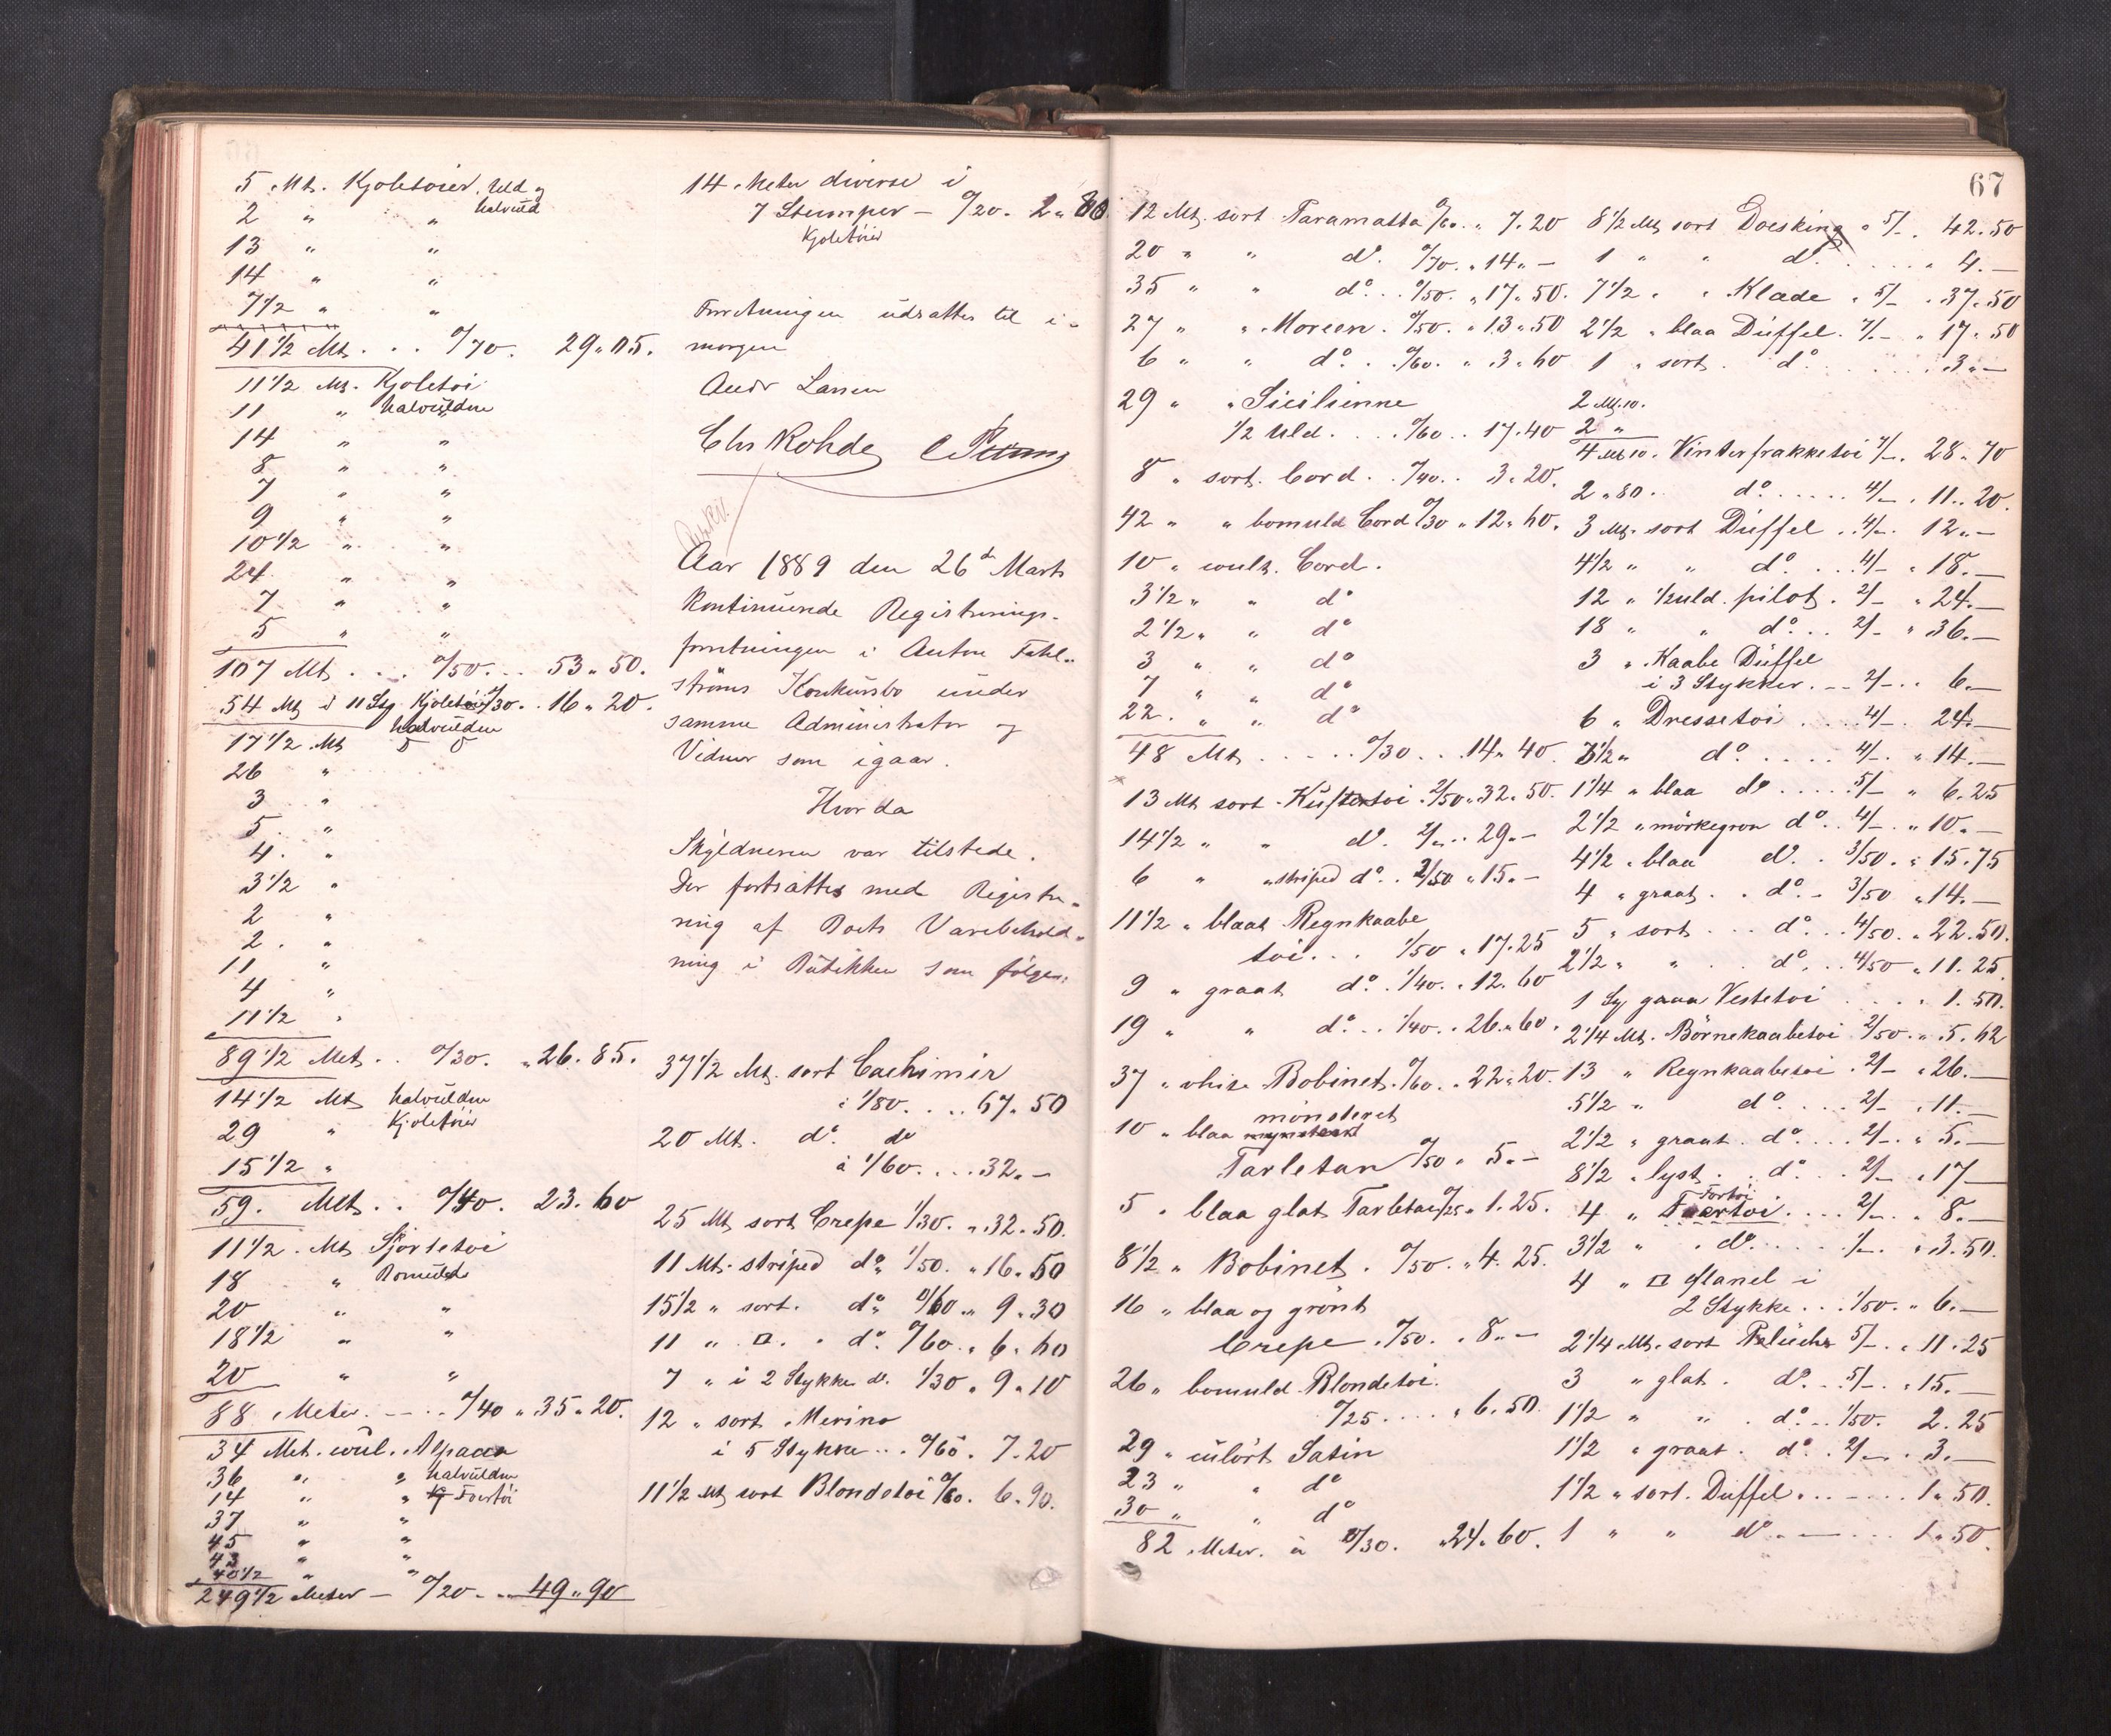 5 Mt. Kjoletoier. Uld og
2 " " halvuld
13 " "
14 " "
7 1/2 " "
41 1/2 Mt. . . 0/70. 29 " 05.
11 1/2 Mt. Kjoletoi
11 " halvulden
14 " "
8 " "
7 " "
9 " "
10 1/2 " "
24 " "
7 " "
5 " "
107 Mt. . . 0/50. . . 53 " 50.
54 Mt i 11 Stk Kjoletöi 0/30. . 16 " 20.
17 1/2 Mt halvulden
26 "
3 "
5 "
4 "
3 1/2 "
2 "
2 "
11 "
4 "
11 1/2 "
89 1/2 Mt. . 0/30. " 26. 85.
14 1/2 Mt halvulden
29 " Kjoletöier
15 1/2 "
59. Mt. . 0/40. 23. 60
11 1/2 Mt Skjortetoi
18 " Bomuld
20 " "
18 1/2 " "
20 " "
88 Meter. - . . 0/40 " 35 " 20.
34 Met. coul. Alpacca
36 " " halvulden
14 " " Foertöi
37 " "
45 " "
43 " "
40 1/2 " "
249 1/2 Meter - 0/20 - . 49 " 90
14 Meter diverse i
7 Stumper - 0/20. 2 " 80.
Kjoletöier
Forretningen udsattes til i-
morgen
Andr Larsen
Chr Rohde
Aar 1889 den 26de Marts
kontinuerede Registrerings-
forretningen i Anton Fahl-
ströms Konkursbo under
samme Administrator og
Vidner som igaar.
Hvorda
Skyldneren var tilstede.
Der fortsattes med Registre-
ring af Boets Varebehold-
ning i Butikken som følger:
37 1/2 Mt. sort Cachimir
à 1/80. . . . 67. 50
20 Mt. do do
à 1/60. . . . 32. -
25 Mt sort Crepe 1/30. " 32. 50.
11 Mt. striped do 1/50. " 16. 50
15 1/2 " sort. do 0/60 " 9. 30
11 " □. " do. 0/60. " 6. 60
7 " i 2 Stykker do. 1/30 " 9 " 10
12 " sort Merino
i 5 Stykker . . 0/60. 7. 20
11 1/2 Mt sort Blondetoi 0/60. 6. 90.
67
12 Mt. sort Paramatta 0/60. " 7. 20
20 " " do. 0/70. " 14 " -
35 " " do. . 0/50. " 17 " 50.
27 " " Moreen. 0/50. " 13 " 50
6 " " do. . 0/60. " 3 " 60
29 " " Sicilienne
1/2 Uld. . . . 0/60 . . 17. 40
8 " sort. Cord. . 0/40. . 3 " 20.
42 " " bomuld Cord 0/30 " 12 " 60.
10 " coult. Cord.
3 1/2 " " do
2 1/2 " " do
3 " " do
7 " " do
22. " " do
48 Mt. . - . . 0/30. . . 14 " 40.
13 Mt sort Kuftertoi. 2/50 " 32. 50.
14 1/2 " " do. 2/- . . 29 " -
6 " " striped do. . 2/50 " 15 " -
11 1/2 " blaat Regnkaabe
toi. . . 1/50 " 17. 25
9 " graat do. . 1/40. " 12. 60
19 " " do. . . 1/40. . 26 " 60.
37 " white Bobinet. 0/60. " 22 " 20.
mönsteret
10 " blaa
Tarletan 0/50 " 5 " -
5 " blaa glat Tarletan 0/25 " 1. 25.
8 1/2 " Bobinet. 0/50. " 4. 25.
16 " blaa og grönt
Crepe. 0/50. " 8 " -
26 " bomuld Blondetoi.
0/25. . . . " 6. 50
29 " culört Satin
23 " " do
30 " " do
82 Meter. à 0/30. " 24 " 60.
8 1/2 Mt sort Doesking " 5/-. 42. 50
1 " " do. . . . . . " 4. -
7 1/2 " " Klæde " 5/- " 37 " 50
2 1/2 " blaa Düffel. 7/- " 17 " 50
1 " sort. do. . . . . . 3 " -
2 Mt. 10.
2 "
4 Mt 10. Vinterfrakketoi 7/-. 28 " 70
2 " 80. do. . . . . 4/- . 11. 20.
3 Mt. sort Düffel. . 4/-. 12 " -
4 1/2 " " do. . . 4/- " 18. -
12 " 1/2 uld. pilot. 2/- " 24. -
18 " " do. . . 2/- " 36. -
3 " Kaabe Düffel
i 3 Stykker. - - 2/- . . 6. -
6 " Dressetoi . . . . 4/-. 24. -
3 1/2 " do. . . . 4/-. " 14. -
1 1/4 " blaa do. . . . 5/- " 6. 25
2 1/2 " mörkegron do. . 4/-. " 10. -
4 1/2 " blaa do. . 3/50. " 15. 75
4 " graat. . do. - 3/50 " 14. -
5 " sort . . . do. . . 4/50. " 22. 50.
2 1/2 " " . do. . . 4/50 " 11. 25.
1 St graa Vestetoi . . . " 1. 50.
2 1/4 Mt. Börnekaabetoi 2/50. " 5. 62
13 " Regnkaabetoi. 2/- " 26. -
5 1/2 " do. . . . 2/- " 11. -
2 1/2 " graat. do. . . . 2/-. " 5. -
8 1/2 " lyst. . do. . . 2/- " 17 -
Fortoi
4 " Foertoi. . . . 2/-. " 8. -
3 1/2 " " do. . . . 1/-. " 3. 50.
4 " □ flanel i
2 Stykke. . . 1/50. " 6. -
2 1/4 Mt. sort Pelüche 5/-. " 11. 25
3 " glat. do. . . 5/-. " 15. -
1 1/2 " " . do. . . 1/50. 2. 25
1 1/2 " graat. do. . 2/-. " 3. -
1 1/2 " sort. Duffel. . - . . . 1 " 50.
1 " " do. - . . . 1 " 50.